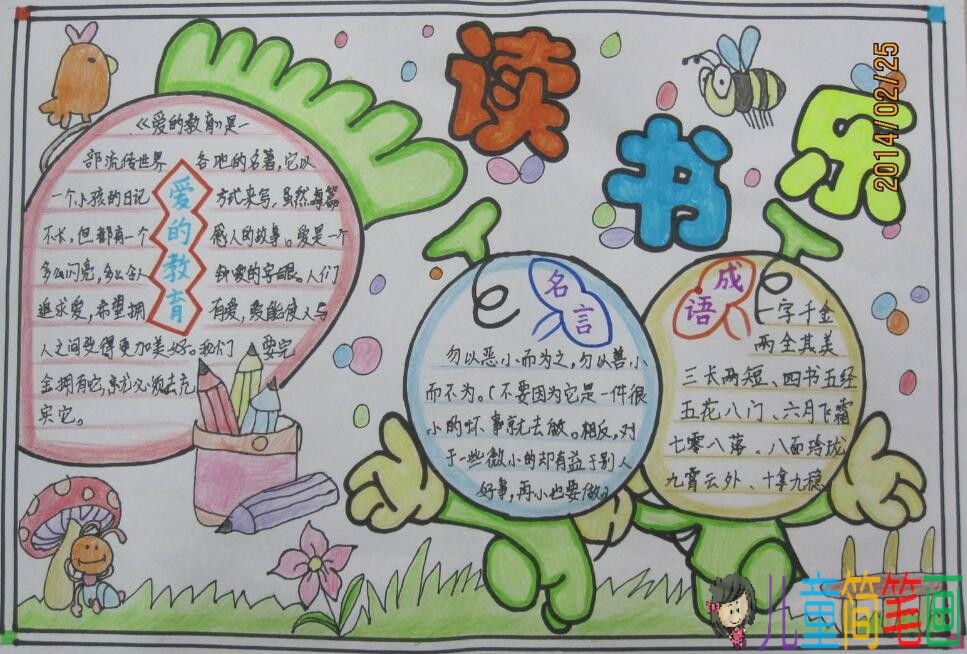 读书乐
2014/02/25
爱的教育
《爱的教育》是一
部流传世界各地的名著,它以
一个小孩的日记方式来写,虽然每篇
不长,但都有一个感人的故事。爱是一个
多么闪亮,多么令人钟爱的字眼。人们
追求爱,希望拥有爱,爱能使人与
人之间变得更加美好。我们要完
全拥有它,就必须去充
实它。
名言
勿以恶小而为之,勿以善小
而不为。(不要因为它是一件很
小的坏事就去做。相反,对
于一些微小的却有益于别人
好事,再小也要做。)
成语
一字千金
两全其美
三长两短、四书五经
五花八门、六月飞霜
七零八落、八面玲珑
九霄云外、十拿九稳
儿童简笔画